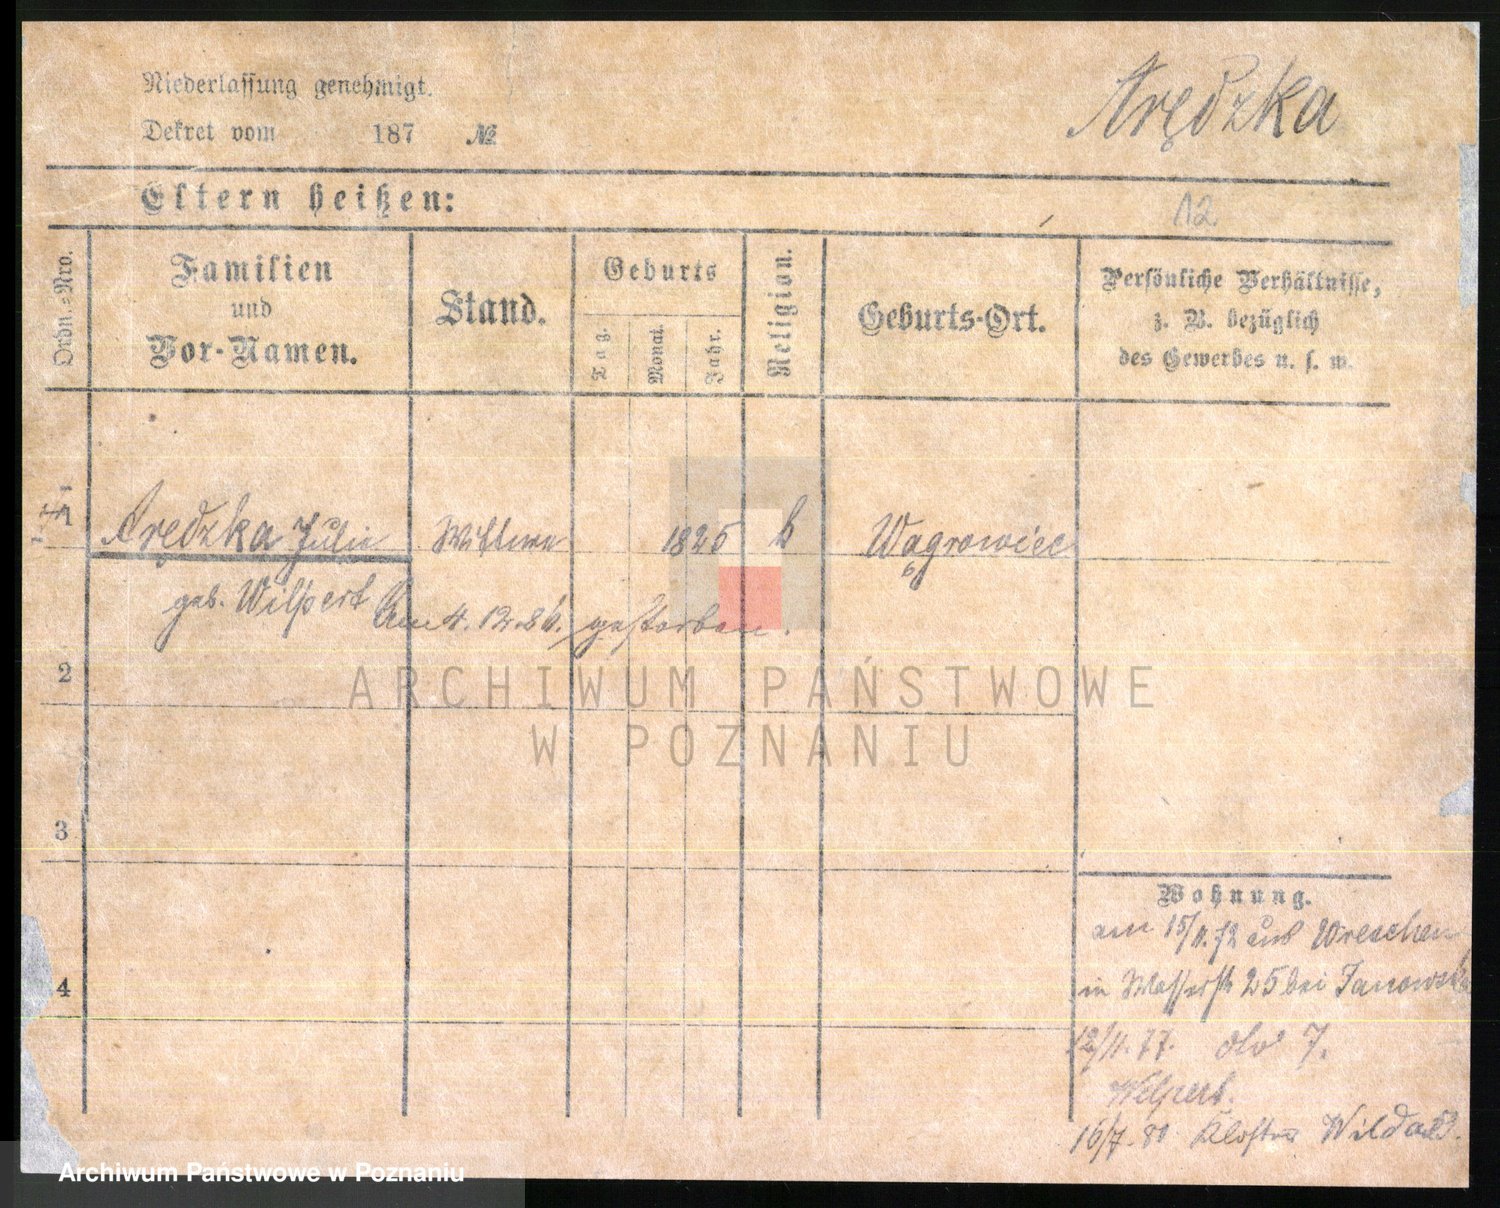 Niederlassung genehmigt.
Dekret vom 187 №
Arędzka
Eltern heißen:
12
Ordn.-Nro.
Familien
und
Vor-Namen.
Stand.
Geburts
Tag.
Monat.
Jahr.
Religion.
Geburts-Ort.
Persönliche Verhältnisse,
z. B. bezüglich
des Gewerbes u. s. w.
1
Arędzka Julie Wittwe 1825 k Wągrowiec
geb. Wilpert Am 4.12.86. gestorben.
2
ARCHIWUM PAŃSTWOWE
W POZNANIU
3
Wohnung.
am 15/11.72 aus Wreschen
4
in Wasserstr 25 bei Janowska
12/11.77. 7.
Welpert.
16/7.80 Kloster Wilda
Archiwum Państwowe w Poznaniu